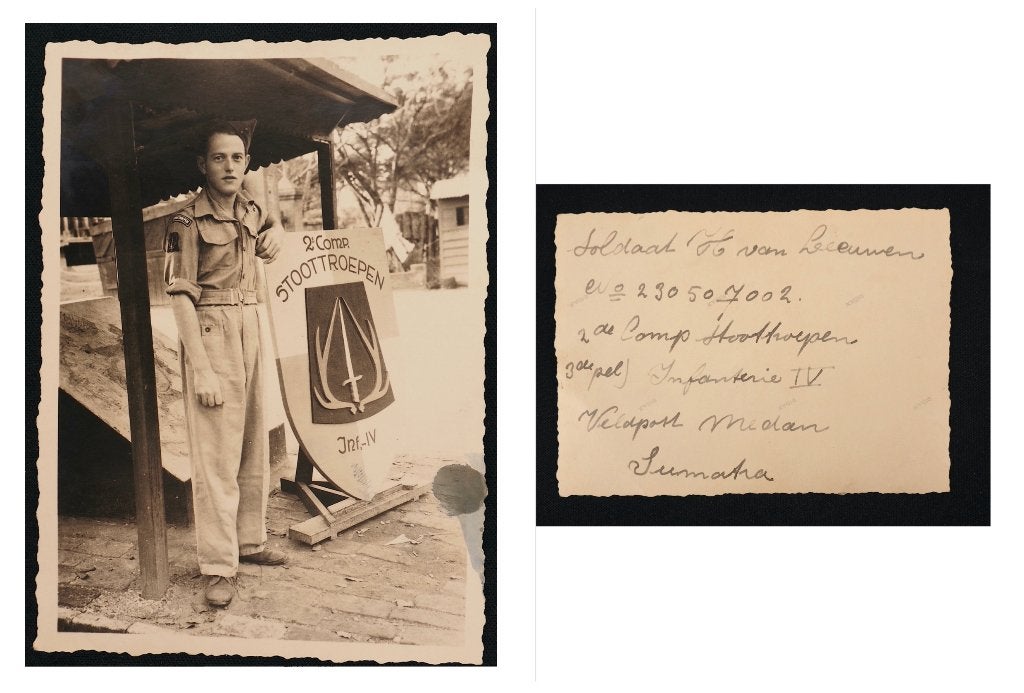 2e Comp.
STOOTTROEPEN
Inf.-IV
Soldaat H van Leeuwen
No 230507002.
2de Comp Stoottroepen
3de pel) Infanterie IV
Veldpost Medan
Sumatra